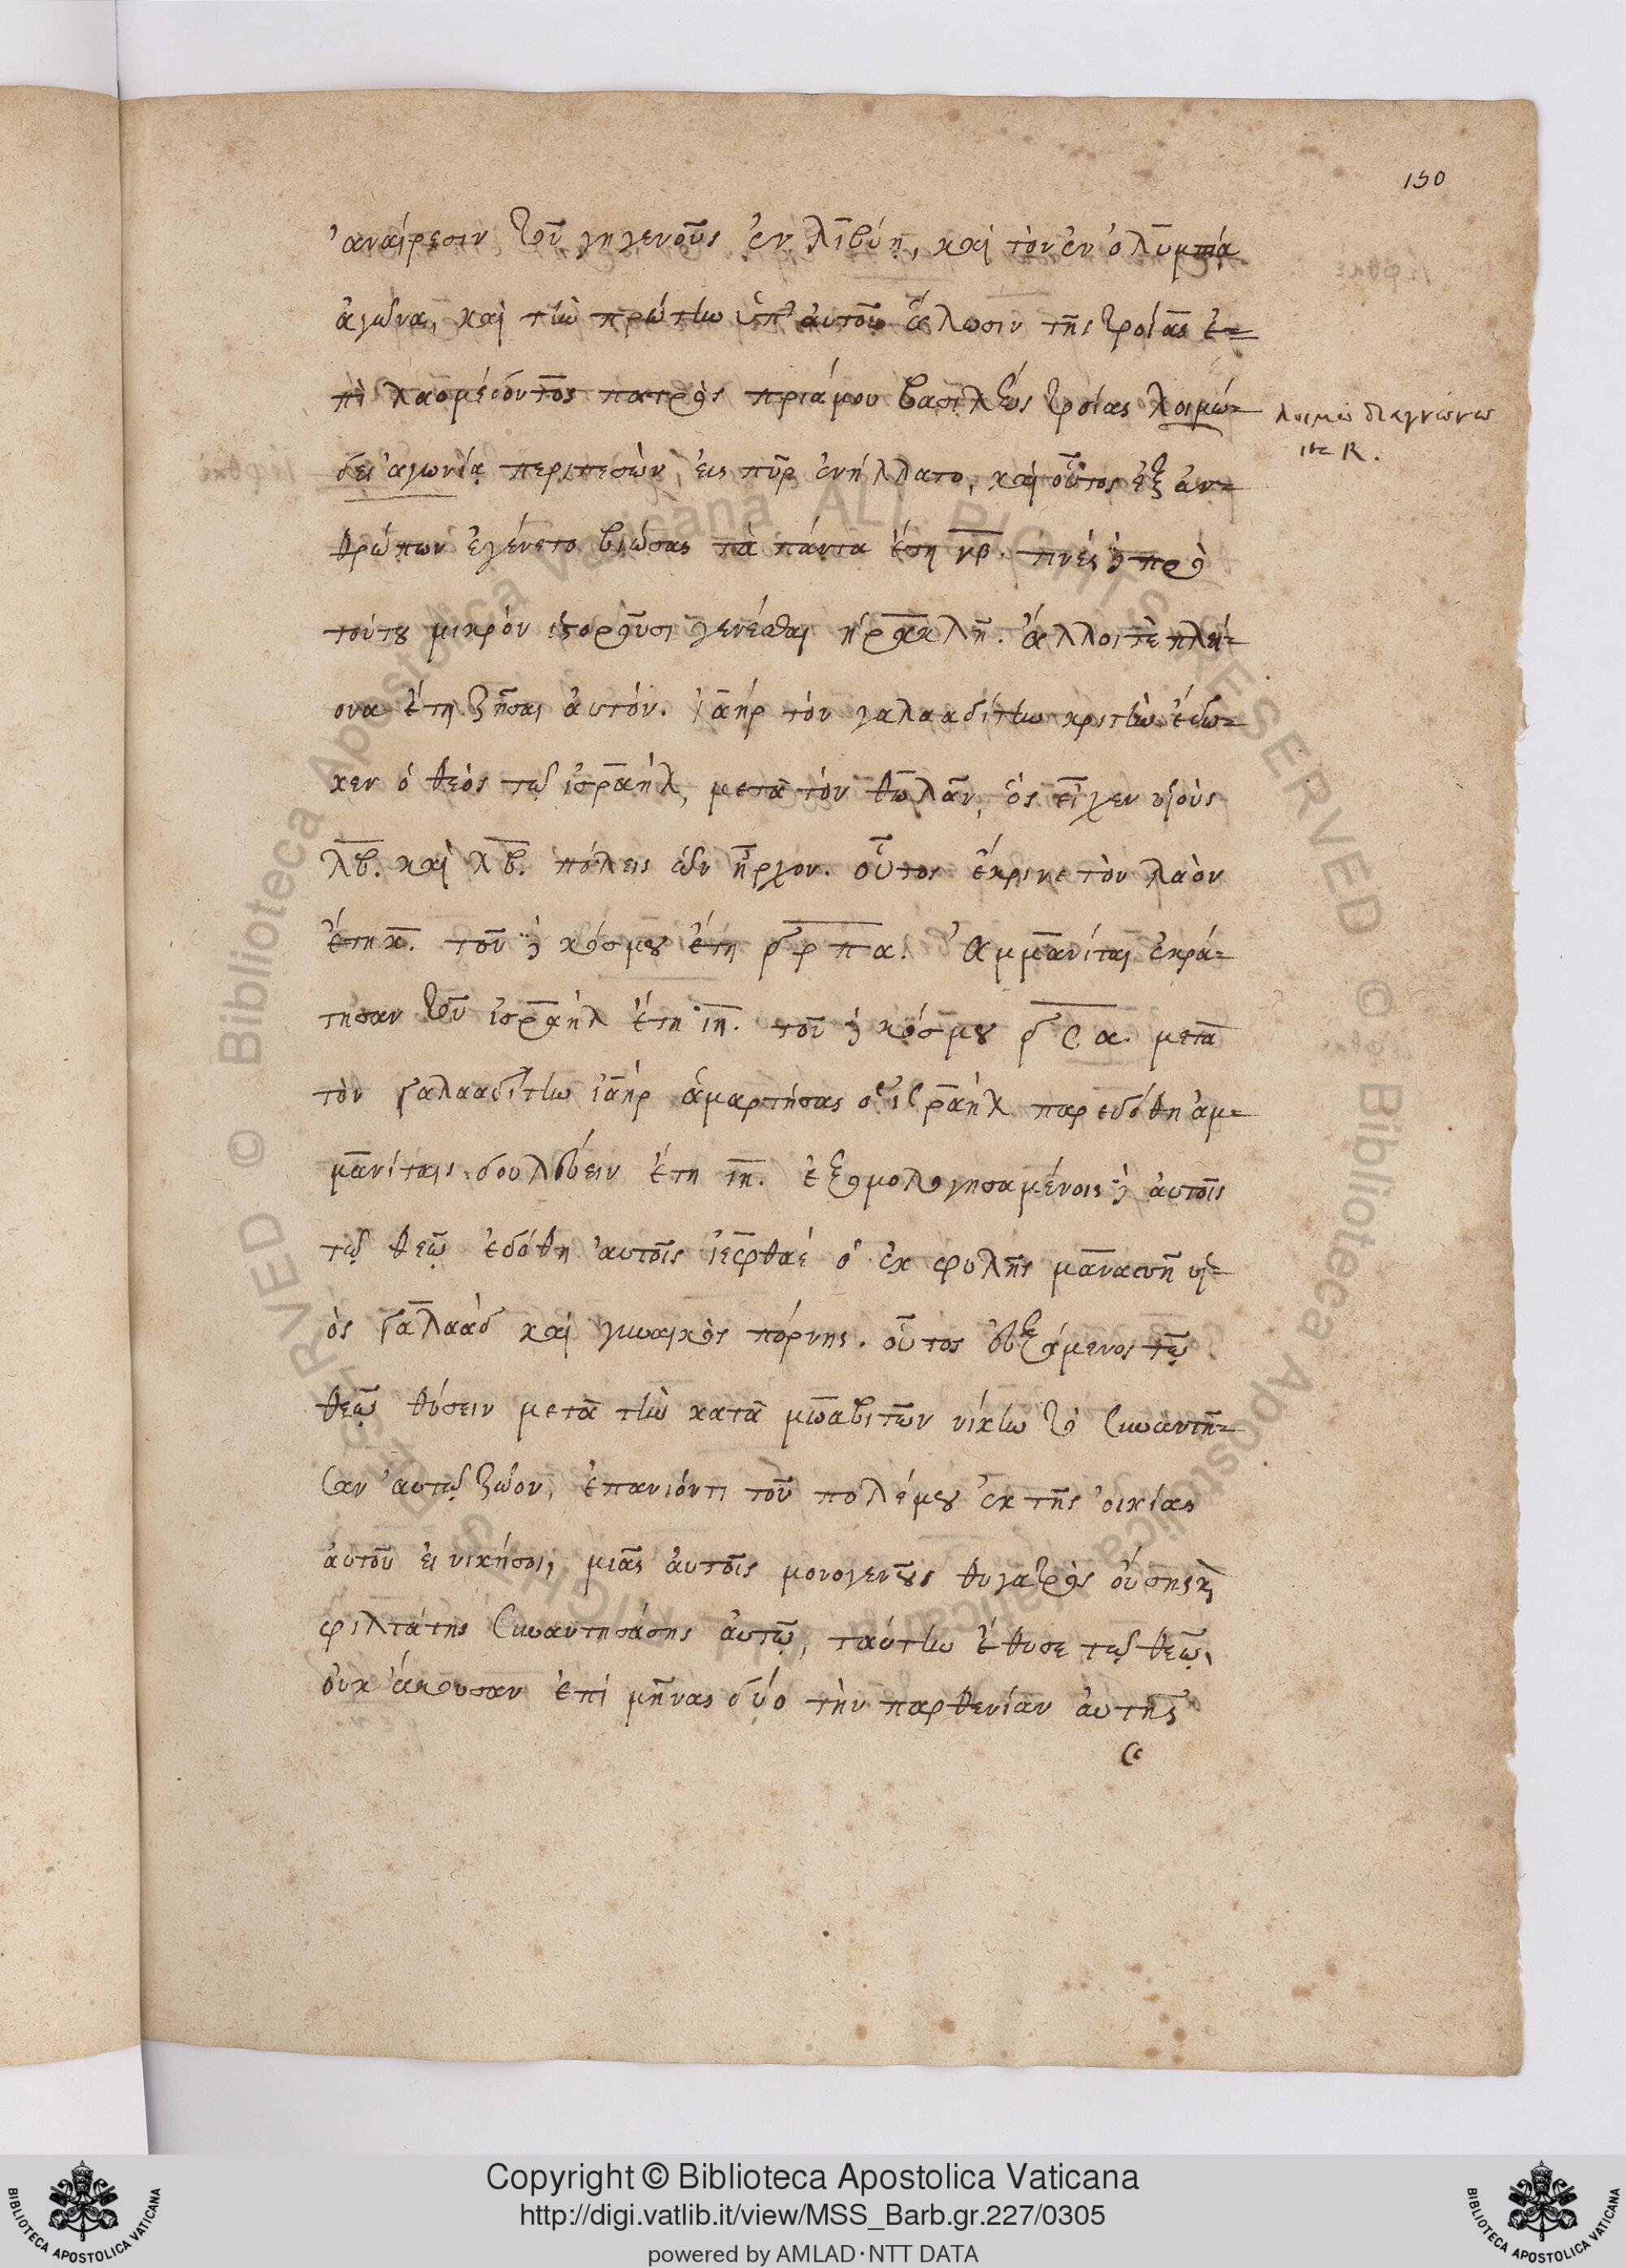 150
ἀναίρεσιν τοῦ γηγενοῦς ἐν λιβύη, καὶ τὸν ἐν ὀλυμπία
ἀγῶνα, καὶ τὴν πρώτην ὑπ' αὐτοῦ ἅλωσιν τῆς τροίας ἐ=
πὶ λαομέδοντος πατρὸς πριάμου βασιλέως τροίας λοιμώ=
δει ἀγωνία περιπεσὼν, εἰς πῦρ ἐνήλλατο, καὶ οὕτος ἐξ ἀν=
θρώπων ἐγένετο βιώσας τὰ πάντα ἔτη νβ. τινὲς δὲ πρὸ
τούτου μικρὸν ἱστοροῦσι γενέσθαι ἡρακλῆ. ἄλλοι τὲ πλεί=
ονα ἔτη ζῆσαι ἀυτόν. ἰαὴρ τὸν γαλααδίτην κριτὴν ἔδω=
κεν ὁ θεὸς τῷ ἰσραὴλ, μετὰ τὸν θωλᾶν, ὃς εἶχεν υἱοὺς
λβ. καὶ λβ. πόλεις ὧν ἦρχον. οὗτος ἔκρινε τὸν λαὸν
ἔτη κ. τοῦ δὲ κόσμου ἔτη ͵δρπα. Ἀμμανίται ἐκρά=
τησαν τοῦ ἰσραὴλ ἔτη ιη. τοῦ δὲ κόσμου ͵δσα. μετὰ
τὸν γαλααδίτην ἰαὴρ ἁμαρτήσας ὁ ἰσραὴλ παρεδόθη ἀμ=
μανίταις δουλεύειν ἔτη ιη. ἐξομολογησαμένοις δὲ ἀυτοῖς
τῷ θεῷ ἐδόθη ἀυτοῖς ἰεφθαέ ὁ ἐκ φυλῆς μανασσῆ υἱ=
ὸς γαλαὰδ καὶ γυναικὸς πόρνης. οὗτος εὐξάμενος τῷ
θεῷ θύσειν μετὰ τὴν κατὰ μωαβιτῶν νίκην τὸ συναντῆ=
σαν ἀυτῷ ζῶον, ἐπανιόντι τοῦ πολέμου ἐκ τῆς οἰκίας
ἀυτοῦ εἰ νικήσοι, μιᾶς ἀυτοῖς μονογενοῦς θυγατρὸς οὔσης κὶ
φιλτάτης συναντησάσης ἀυτῷ, ταύτην ἔθυσε τῷ θεῷ,
οὐκ ἄκουσαν ἐπὶ μῆνας δύο τὴν παρθενίαν ἀυτῆς
λοιμῶ διαγνώνω
in R.
Copyright © Biblioteca Apostolica Vaticana
http://digi.vatlib.it/view/MSS_Barb.gr.227/0305
powered by AMLAD·NTT DATA
BIBLIOTECA APOSTOLICA VATICANA
BIBLIOTECA APOSTOLICA VATICANA
© Biblioteca Apostolica Vaticana ALL RIGHTS RESERVED © Biblioteca Apostolica Vaticana ALL RIGHTS RESERVED